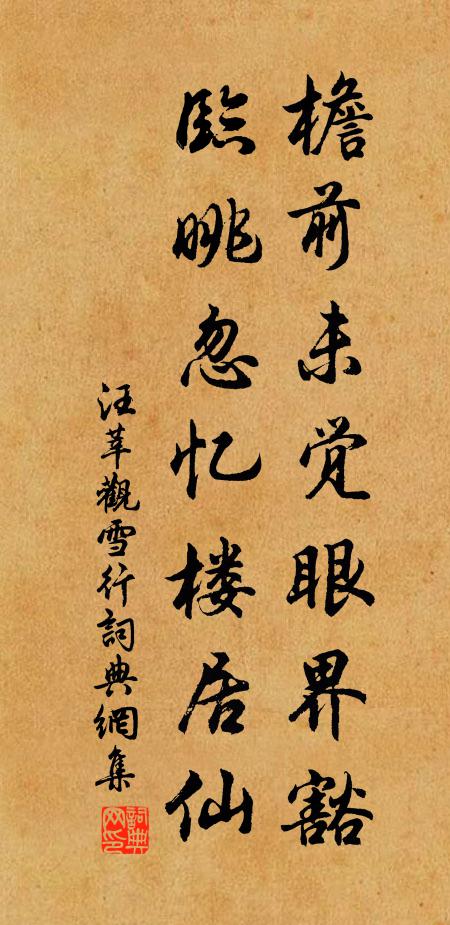 檐前未觉眼界豁
臨眺忽忆楼居仙
汪莘觀雪行詞典網集
詞典网印